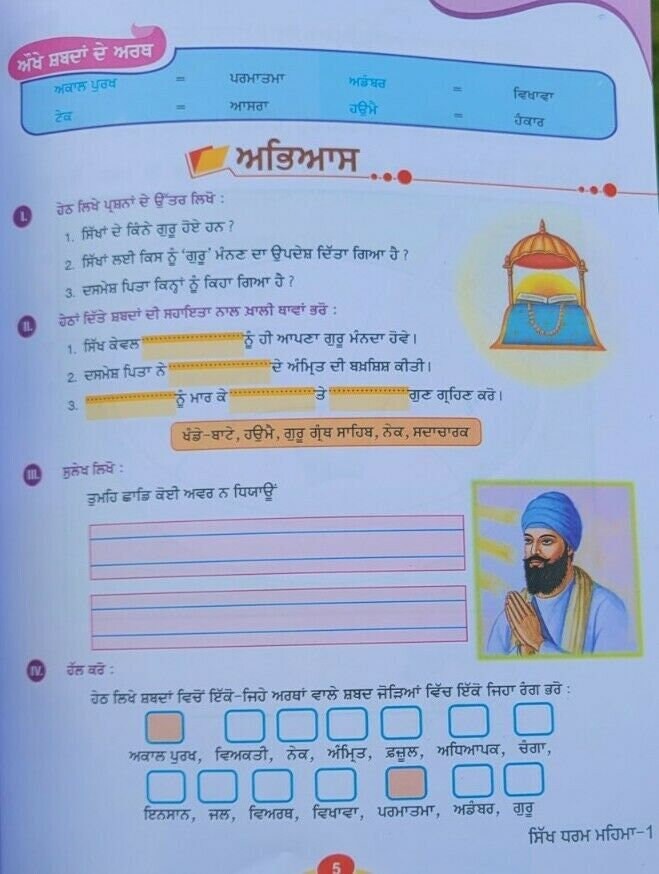 ਔਖੇ ਸ਼ਬਦਾਂ ਦੇ ਅਰਥ
ਅਕਾਲ ਪੁਰਖ = ਪਰਮਾਤਮਾ ਅਡੰਬਰ = ਵਿਖਾਵਾ
ਟੇਕ = ਆਸਰਾ ਹਉਮੈ = ਹੰਕਾਰ
ਅਭਿਆਸ
I. ਹੇਠ ਲਿਖੇ ਪ੍ਰਸ਼ਨਾਂ ਦੇ ਉੱਤਰ ਲਿਖੋ :
1. ਸਿੱਖਾਂ ਦੇ ਕਿੰਨੇ ਗੁਰੂ ਹੋਏ ਹਨ ?
2. ਸਿੱਖਾਂ ਲਈ ਕਿਸ ਨੂੰ ‘ਗੁਰੂ’ ਮੰਨਣ ਦਾ ਉਪਦੇਸ਼ ਦਿੱਤਾ ਗਿਆ ਹੈ ?
3. ਦਸਮੇਸ਼ ਪਿਤਾ ਕਿਨ੍ਹਾਂ ਨੂੰ ਕਿਹਾ ਗਿਆ ਹੈ ?
II. ਹੇਠਾਂ ਦਿੱਤੇ ਸ਼ਬਦਾਂ ਦੀ ਸਹਾਇਤਾ ਨਾਲ ਖ਼ਾਲੀ ਥਾਵਾਂ ਭਰੋ :
1. ਸਿੱਖ ਕੇਵਲ .................... ਨੂੰ ਹੀ ਆਪਣਾ ਗੁਰੂ ਮੰਨਦਾ ਹੋਵੇ।
2. ਦਸਮੇਸ਼ ਪਿਤਾ ਨੇ .................... ਦੇ ਅੰਮ੍ਰਿਤ ਦੀ ਬਖ਼ਸ਼ਿਸ਼ ਕੀਤੀ।
3. .................... ਨੂੰ ਮਾਰ ਕੇ .................... ਤੇ .................... ਗੁਣ ਗ੍ਰਹਿਣ ਕਰੋ।
ਖੰਡੇ-ਬਾਟੇ, ਹਉਮੈ, ਗੁਰੂ ਗ੍ਰੰਥ ਸਾਹਿਬ, ਨੇਕ, ਸਦਾਚਾਰਕ
III. ਸੁਲੇਖ ਲਿਖੋ :
ਤੁਮਹਿ ਛਾਡਿ ਕੋਈ ਅਵਰ ਨ ਧਿਯਾਊਂ
IV. ਹੱਲ ਕਰੋ :
ਹੇਠ ਲਿਖੇ ਸ਼ਬਦਾਂ ਵਿਚੋਂ ਇੱਕੋ-ਜਿਹੇ ਅਰਥਾਂ ਵਾਲੇ ਸ਼ਬਦ ਜੋੜਿਆਂ ਵਿੱਚ ਇੱਕੋ ਜਿਹਾ ਰੰਗ ਭਰੋ :
ਅਕਾਲ ਪੁਰਖ, ਵਿਅਕਤੀ, ਨੇਕ, ਅੰਮ੍ਰਿਤ, ਫ਼ਜ਼ੂਲ, ਅਧਿਆਪਕ, ਚੰਗਾ,
ਇਨਸਾਨ, ਜਲ, ਵਿਅਰਥ, ਵਿਖਾਵਾ, ਪਰਮਾਤਮਾ, ਅਡੰਬਰ, ਗੁਰੂ
ਸਿੱਖ ਧਰਮ ਮਹਿਮਾ-1
5